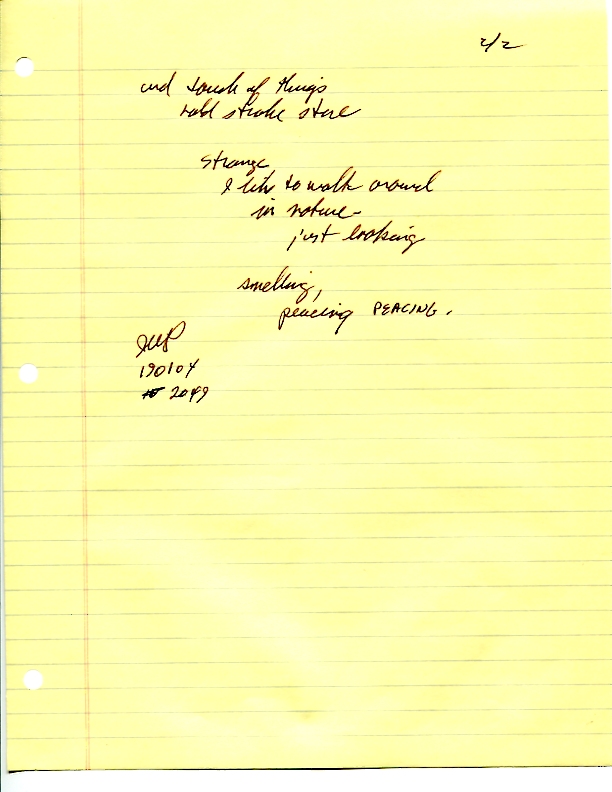 2/2
and touch of things
hold stroke stare
strange
I like to walk around
in nature-
just looking
smelling,
peacing PEACING.
190104
2049